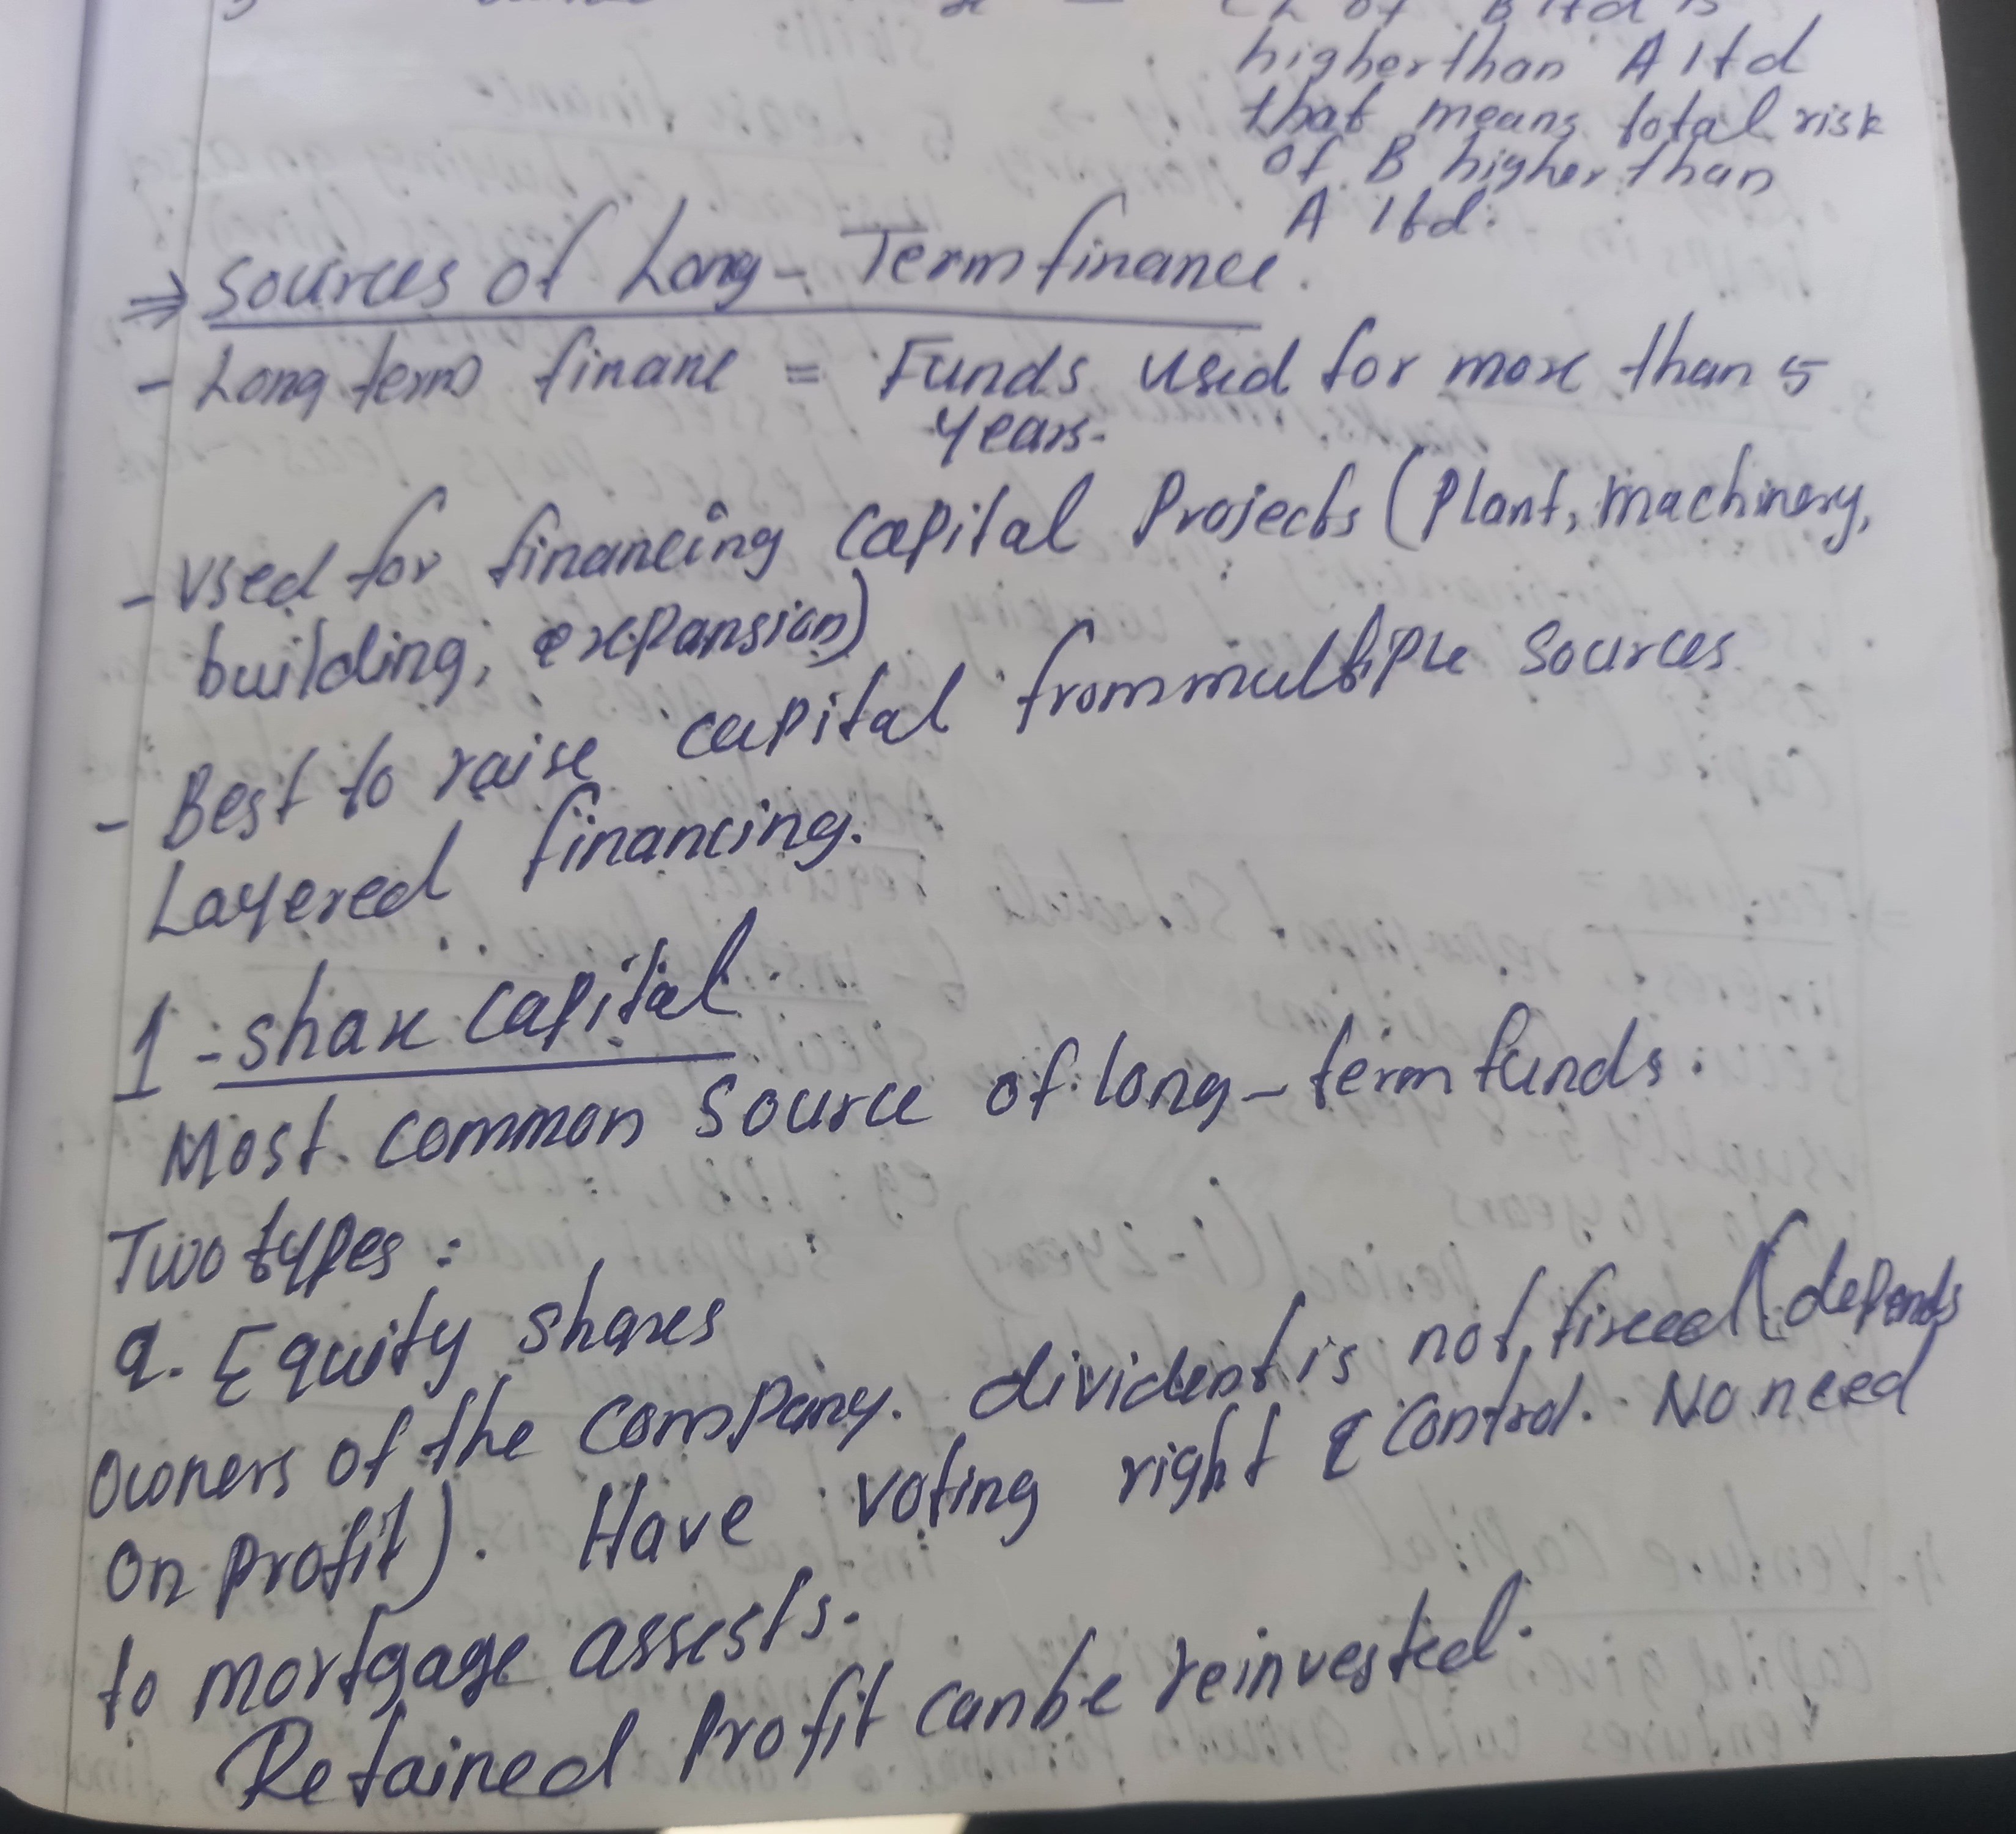 of B ltd is
higher than A ltd
that means total risk
of B higher than
A ltd.
⇒ Sources of Long-Term finance.
- Long term financ = Funds used for more than 5
years.
- Used for financing capital Projects (Plant, machinery,
building, expansion)
- Best to raise capital from multiple sources
Layered financing.
1 - share capital.
Most common source of long-term funds.
Two types :
a. Equity shares
Owners of the company. divident is not fixed (depends
on profit). Have voting right & control. No need
to mortgage assests.
Retained profit can be reinvested.